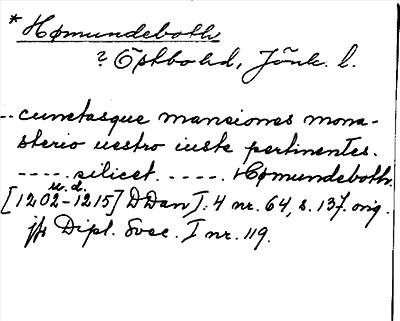 * Hømundeboth
? Östbo hd, Jönk. l.
-- cunctasque mansiones mona-
sterio uestro iuste pertinentes.
----- silicet ----- Hømundeboth.
u. d.
[1202-1215] DDan I:4 nr. 64, s. 137. orig.
jfr Dipl. Svec. I nr. 119.